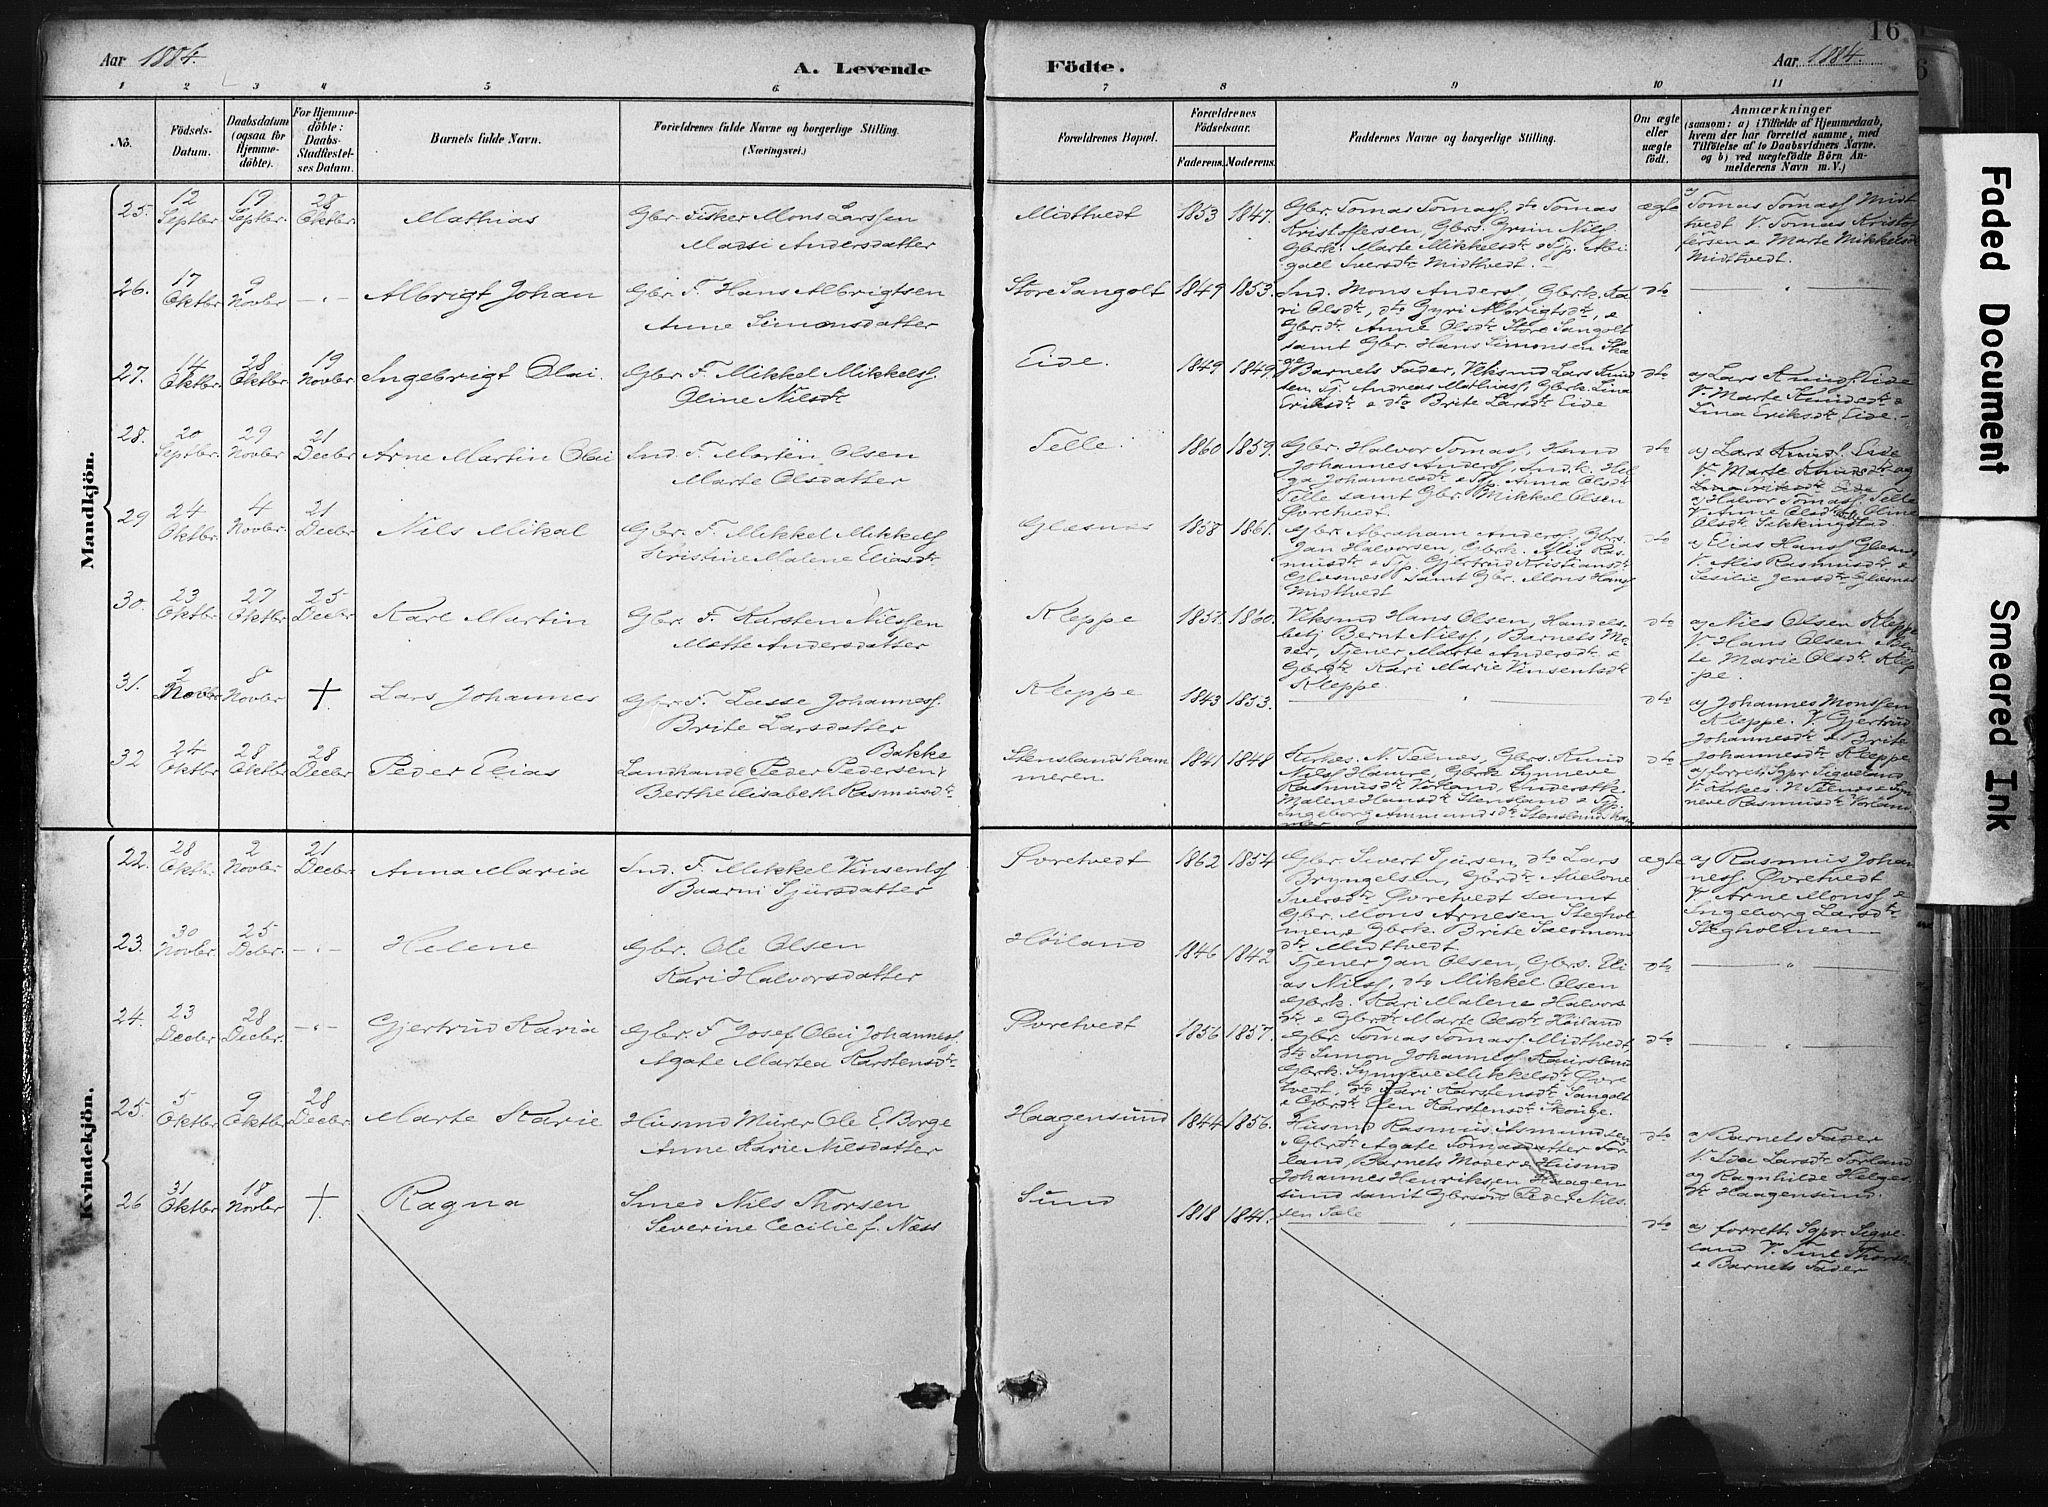 16
Aar 1884.
A. Levende
Födte.
Aar 1884.
1 2 3 4 5 6. 7 8 9 10 11
No.
Födsels-Datum.
Daabsdatum (ogsaa for Hjemme-döbte).
For Hjemme-döbte: Daabs-Stadfæstel-ses Datum.
Barnets fulde Navn.
Forældrenes fulde Navne og borgerlige Stilling.
(Næringsvei.)
Forældrenes Bopæl.
Forældrenes Födselsaar.
Faderens. Moderens.
Faddernes Navne og borgerlige Stilling.
Om ægte eller uægte födt.
Anmærkninger
(saasom: a) i Tilfælde af Hjemmedaab,
hvem der har forrettet samme, med
Tilföielse af to Daabsvidners Navne.
og b) ved uægtefödte Börn An-
melderens Navn m. V.)
Mandkjön.
25. 12 Septbr 19 Septbr 28 Oktbr. Mathias
Gbr. Fisker Mons Larssen
Massi Andersdatter
Midtvedt 1853 1847.
Gbr. Tomas Tomass, dto Tomas
Kristoffersen, Gbrs. Nils
Gbrk. Marte Mikkelsdtr
Iversdtr Midtvedt.
ægte
a) Tomas Tomass Midt
tvedt V. Tomas Kristof
fersen & Marte Mikkelsdtr
Midtvedt.
26. 17 Oktbr 9 Novbr Albrigt Johan
Gbr. F. Hans Albrigtsen
Anne Simonsdatter
Store Sangolt 1849 1853.
Ind. Mons Anderss, Gbrk. Ka
ri Olsdtr, dto Gyri Albrigtsdtr, &
Gbr. dtr Anne Olsdtr Store Sangolt
samt Gbr. Hans Simonsen Ska
dto
27. 14 Oktbr 28 Oktbr 19 Novbr Ingebrigt Olai.
Gbr. F. Mikkel Mikkels.
Oline Nilsdtr
Eide. 1849 1849.
Barnets Fader, Lars Knud
sen, Tj. Andreas Mathiass, Gbrk. Lina
Eriksdtr & dto Brite Larsdtr Eide
dto
a) Lars Knuds. Eide
V. Marte Knudsdtr &
Lina Eriksdtr Eide.
28. 20 Septbr. 29 Novbr 21 Decbr Arne Martin Olai
Ind. F. Martin Olsen
Marte Olsdatter
Telle. 1860 1859.
Gbr. Halvor Tomass, Husmd
Johannes Anderss, Ind.k. Hel
ga Johannesdtr & Anna Olsdtr
Telle samt Gbr. Mikkel Olsen
Øvretvedt.
dto
a) Lars Knuds. Eide
V. Marte Knudsdtr og
Lina Eriksdtr Eide
a) Halvor Tomass. Telle
V. Anne Olsdtr & Oline
Olsdtr
29 24 Oktbr. 4 Novbr. 21 Decbr Nils Mikal
Gbr. F. Mikkel Mikkels
Kristine Malene Eliasdtr
Glesnæs 1858 1861.
Gbr. Abraham Anders, Gbrs.
Jan Halvorsen, Gbrk. Alis Ras-
musdtr & Gjertrud Kristiansdtr
Glesnes samt Gbr. Mons Hans
Midtvedt
dto
a) Elias Hans Glesnes
V. Alis Rasmusdtr &
Cecilie Jensdtr Glesnes
30. 23 Oktbr 27 Oktbr 25 Decbr Karl Martin
Gbr. F. Karsten Nilssen
Mætte Andersdatter
Kleppe 1851. 1860.
Hans Olsen, Handels-
betj Bernt Nilss, Barnets Mo-
der, Tjener Marte Andersdtr &
Gbrdtr Kari Marie Vinsentsdtr
Kleppe.
dto
a) Nils Olsen Kleppe
V. Hans Olsen &
Marie Olsdtr Klep
pe.
31. 2 Novbr 8 Novbr + Lars Johannes
Gbr. F. Lasse Johannes.
Brite Larsdatter
Kleppe 1843 1853.
dto
a) Johannes Monssen
Kleppe. V. Gjertrud
Johannesdtr & Brite
Johannesdtr Kleppe
32 24 Oktbr 28 Oktbr 28 Decbr Peder Elias
Bakke
Landhandl Peder Pedersen
Berthe Elisabeth Rasmusdtr.
Stenslandsham
meren. 1841 1848
Kirkes. N. Teenes, Gbrs. Knud
Nilss Hamre, Gbrk. Synneve
Rasmusdtr Vorland,
Malene Hansdtr Stensland &
Ingeborg Ammundsdtr Stenslandsham
mer
dto
a) forrett. Sgpr Sigveland
V. Kirkes. N Teenes & Syn
neve Rasmusdtr Vorland
Kvindekjön.
22. 28 Oktbr. 2 Novbr 21 Decbr Anna Maria
Ind. F. Mikkel Vinsents
Baarni Sjursdatter
Øvretvedt 1862 1854
Gbr. Sivert Sjursen, dto Lars
Bryngelsen, Gbrdtr. Abelone
Iversdtr Øvretvedt samt
Gbr. Mons Arnesen Steghol
men & Gbrk. Brite Salomons
dtr Midtvedt
ægte
a) Rasmus Johan
ness. Øvretvedt
V. Arne Monss &
Ingeborg Larsdtr
Stegholmen
23. 30 Novbr. 25 Decbr. Helene
Gbr. Ole Olsen
Kari Halvorsdatter
Höiland 1846 1842
Tjener Jan Olsen, Gbrs. Eli
as Nilss, dto Mikkel Olsen
Gbrk. Kari Malene Halvors
dtr & Gbrdtr Marte Olsdtr Höiland
dto
24. 23 Decbr 28 Decbr. Gjertrud Karia
Gbr. F. Josef Olai Johanness.
Agate Martea Karstensdtr.
Øvretvedt 1856 1857.
Gbr. Tomas Tomass Midtvedt,
dto Simon Johanness
Gbrk. Synneve Mikkelsdtr Øvre
tvedt, dto Kari Karstensdtr Sangolt
& Gbrdtr. Elen Karstensdtr Skouge.
dto
25. 5 Oktbr 9 Oktbr 28 Decbr Marte Karie
Husmd Murer Ole E Borge
Anne Karie Nilsdatter
Haagensund 1844 1856.
Husmd Rasmus Asmundsen
& Gbrdtr Agate Tomasdatter Tör
land, Barnets Moder & Husmd
Johannes Henriksen Haagen
sund samt Gbrsøn Peder Nils
sen Tæle
dto
a) Barnets Fader
V. Ida Larsdtr Törland
og Ragnhilde Helges
dtr Haagensund.
26 31 Oktbr 18 Novbr + Ragna
Smed Nils Thorsen
Severine Cecilie f. Næss
Sund 1818 1841.
dto
a) forrett. Sgpr. Sigve-
land V. Thorsen
& Barnets Fader
Faded Document
Smeared Ink